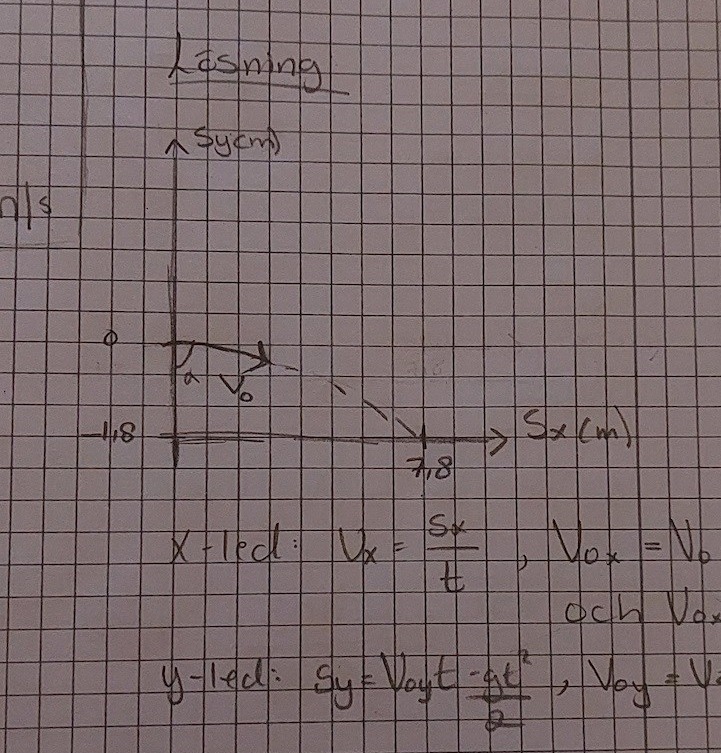 Lösning
Sy(m)
n/s
0
α V₀
-1,8
Sx (m)
7,8
x-led: Vx = Sx/t , V₀x = V₀
och V₀x
y-led: Sy = V₀yt -gt²/2 , V₀y =